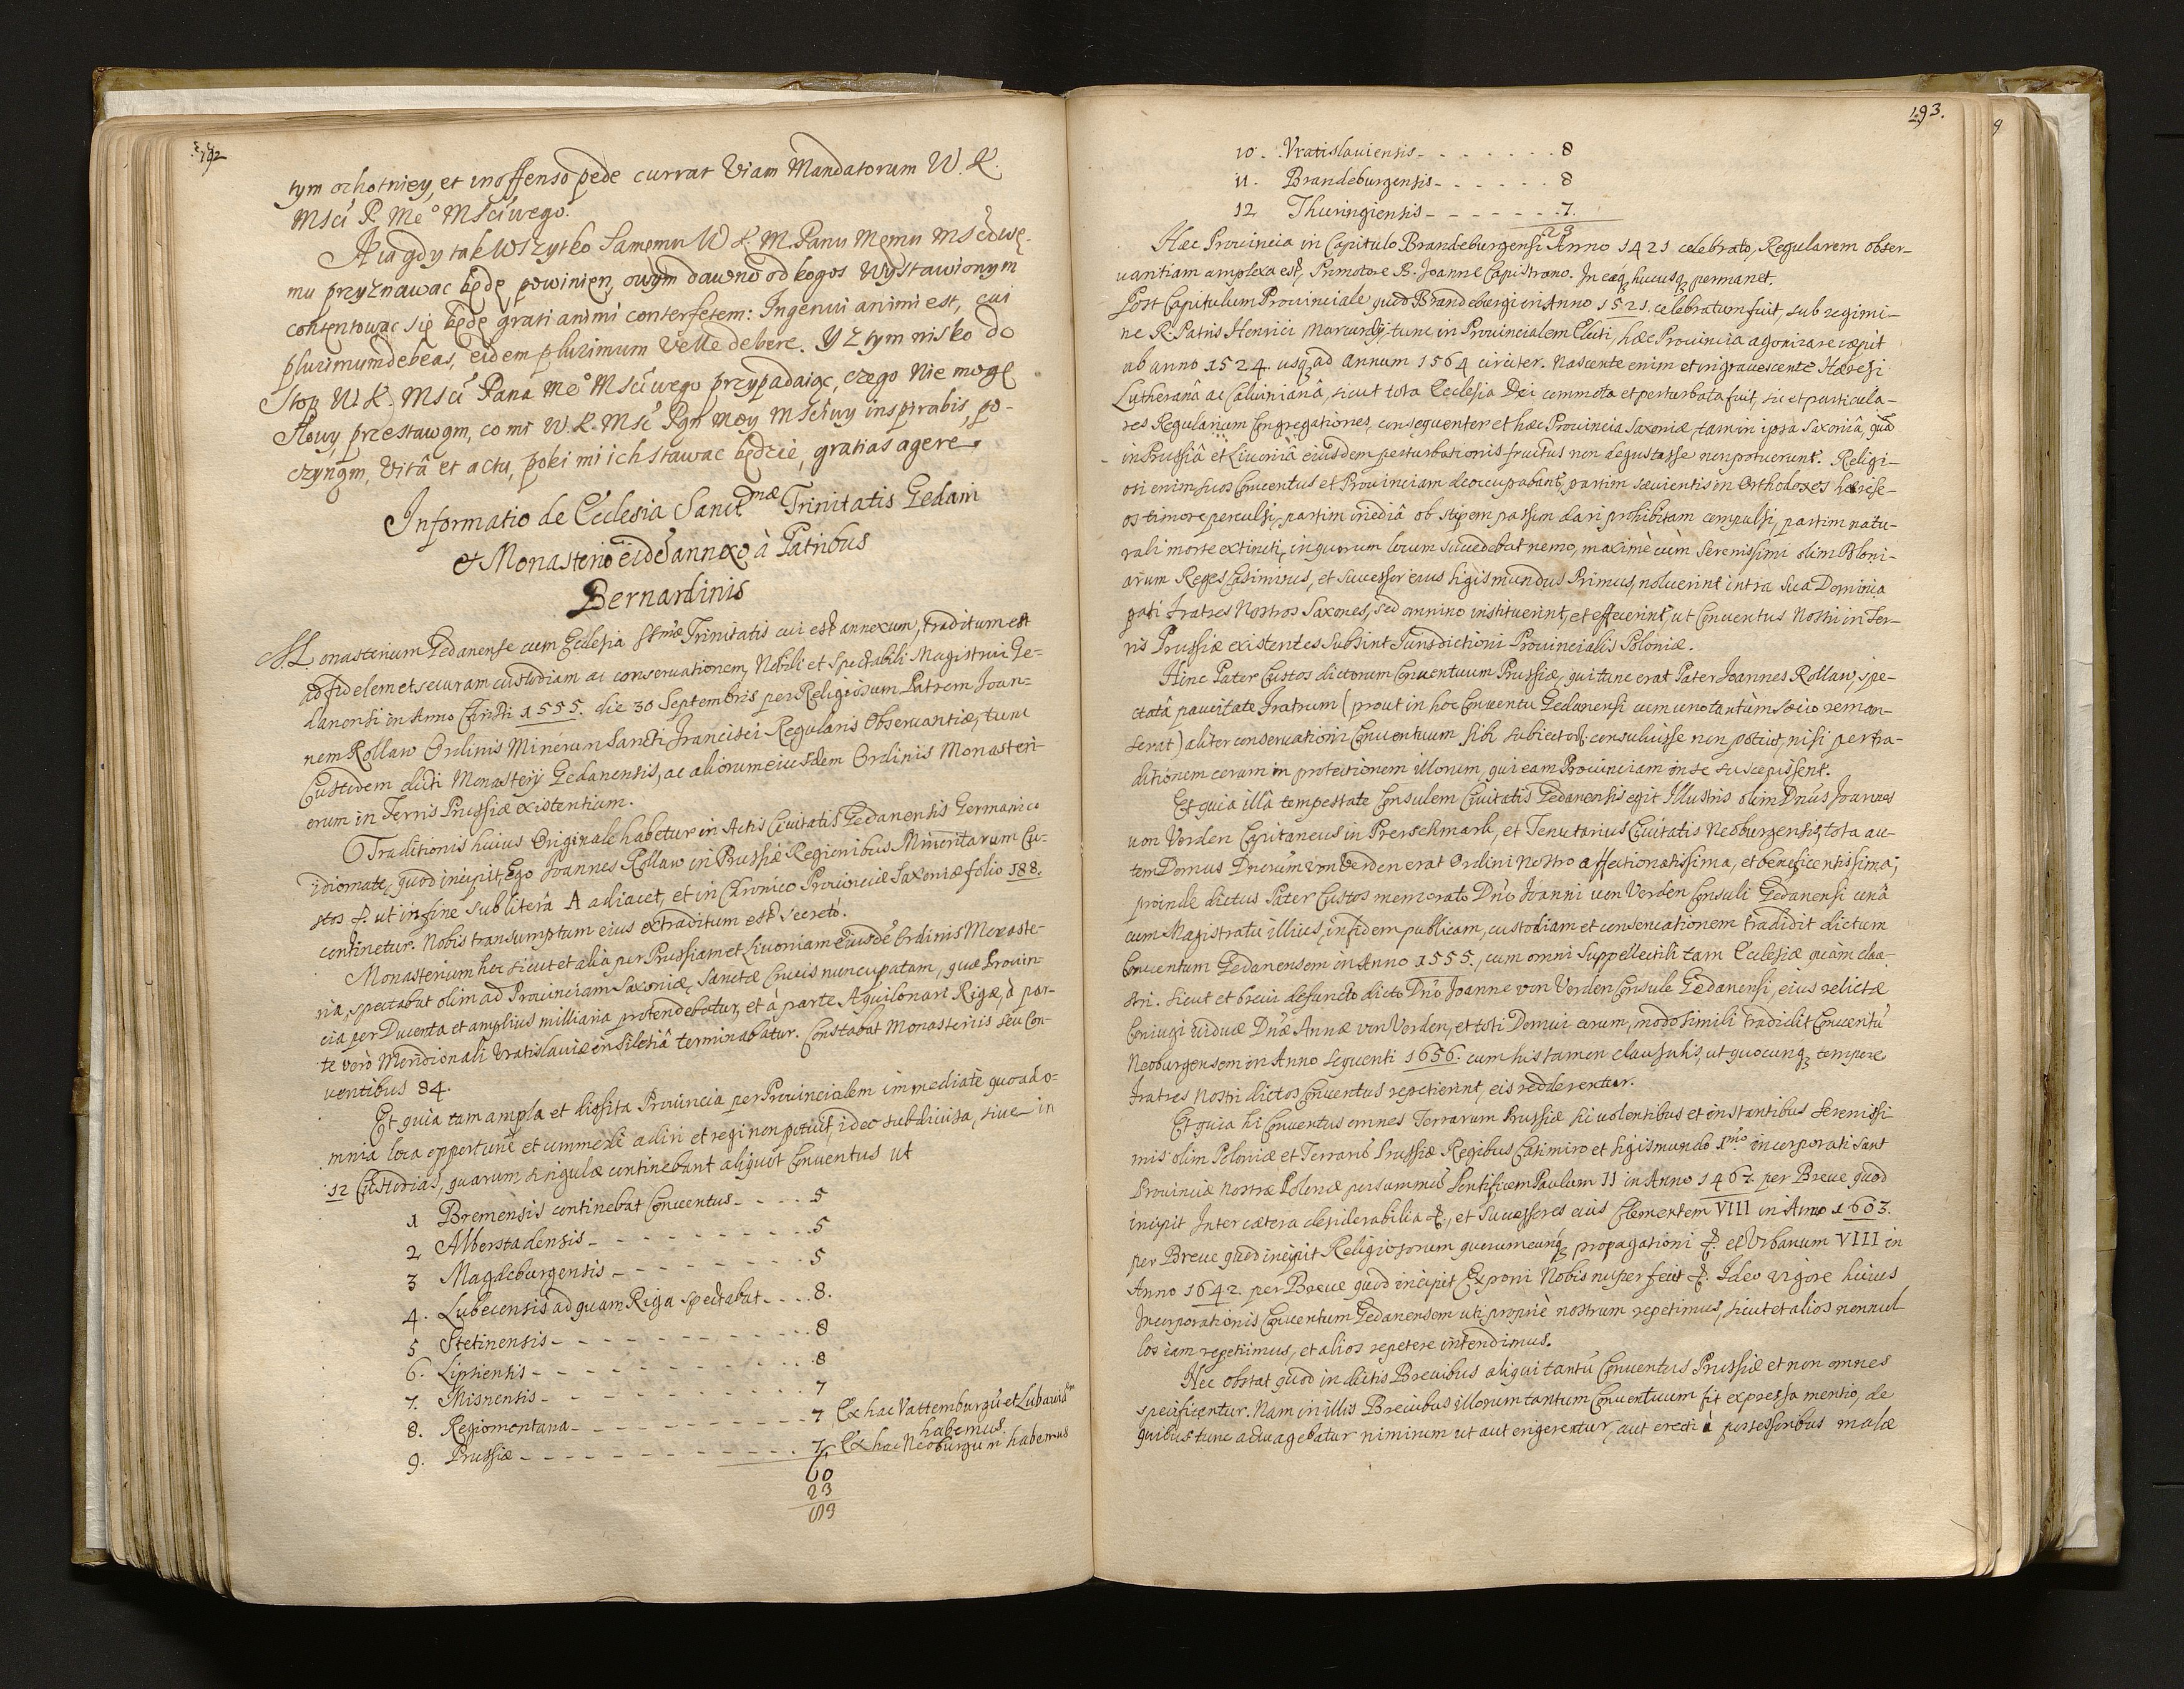 192
tym ochotniey, et inoffenso pede currat Viam Mandatorum W. K.
Msci P. Meº Msciwego.
A ia gdy tak wszytko Samemu W K. M. Panu Memu Mscíwe-
mu przyznawac będę powinien, owym dawno od kogos wystawionym
contentowac się będę grati animi conterfetem: Ingenui animi est, cui
plurimum debeas, eidem plurimum velle debere. Y z tym nisko do
Stop W. K. Msci Pana Meº Msciwego przypadaiąc, czego nie mogę
Słowy, przestawąm, co mi W. K. Msc Pąn Moy Msciwy inspirabis, po-
czyngm, Vitâ et actu, poki mi ich stawac będzie, gratias agere.
Informatio de Ecclesia Sanctmæ Trinitatis Gedani
et Monasterio eidē annexo à Patribus
Bernardinis
Monasterium Gedanense cum Ecclesia SSmæ Trinitatis cui est annexum, traditum est
ad fidelem et securam custodiam ac conseruationem, Nobili et Spectabili Magistrui Ge-
danensi in Anno Christi 1555. die 30 Septembris per Religiosum Patrem Joan-
nem Rollaw Ordinis Minorum Sancti Francisci Regularis Obseruantiæ, tunc
Custodem dicti Monasterij Gedanensis, ac aliorum eiusdem Ordinis Monasteri-
orum in Terris Prussiæ existentium.
Traditionis huius Originale habetur in Actis Ciuitatis Gedanensis Germanico
idiomate, quod incipit, Ego Joannes Rollaw in Prussiæ Regionibus Minoritarum Cu-
stos &. ut in fine sub literâ A adiacet, et in Chronico Prouinciæ Saxoniæ folio 188.
continetur. Nobis transumptum eius extraditum est secretò.
Monasterium hoc sicut et alia per Prussiam et Liuoniam eiusdē Ordinis Monaste-
ria, spectabat olim ad Prouinciam Saxoniæ, Sanctæ Crucis nuncupatam, quæ Prouin-
cia per Ducenta et amplius milliaria protendebatur, et à parte Aquilonari Rigæ, à par-
te verò Meridionali Vratislauiæ in Silesiâ terminabatur. Constabat Monasterijs seu Con-
uentibus 84.
Et quia tam ampla et dissita Prouincia per Prouincialem immediatè quoad o-
mnia loca opportunè et commodè adiri et regi non potuit, ideo subdiuisa, siue in
12 Custodias, quarum singulæ continebant aliquot Conuentus ut
1 Bremensis continebat Conuentus - - - - 5
2 Alberstadensis - - - - - - - - - 5
3 Magdeburgensis - - - - - - - - 5
4. Lubecensis ad quam Riga spectabat - - - - 8.
5 Stetinensis - - - - - - - - - - - 8
6. Lipsiensis - - - - - - - - - - - 8
7. Misnensis - - - - - - - - - - - 7
8. Regiomontana - - - - - - - - - - 7 Ex hac Vattemburgū et Lubauiā
habemus
9. Prussiæ - - - - - - - - - - - 7 Ex hac Neoburgum habemus
60
23
83
193.
10. Vratislauiensis - - - - - - - 8
11. Brandeburgensis - - - - - - 8
12 Thuringiensis - - - - - - - 7.
23
Hæc Prouincia in Capitulo Brandeburgensi Anno 1421 celebrato, Regularem obser-
uantiam amplexa est, Promotore B. Joanne Capistrano. In eaq, hucusq, permanet.
Post Capitulum Prouinciale quod Brandeburgi in Anno 1521. celebratum fuit, sub regimi-
ne R. Patris Henrici Marcardi, tunc in Prouincialem Electi, hæc Prouincia agonizare cæpit
ab anno 1524. usq, ad annum 1564 circiter. Nascente enim et ingrauescente Hæresi
Lutheranâ ac Caluinianâ, sicut tota Ecclesia Dei commota et perturbata fuit, sic et particula-
res Regularium Congregationes, consequenter et hæc Prouincia Saxoniæ, tam in ipsa Saxoniâ, quā
in Prussiâ et Liuoniâ eiusdem perturbationis fructus non degustasse non potuerunt. Religi-
osi enim suos Conuentus et Prouinciam deoccupabant, partim sæuientis in Orthodoxos hærese-
os timore perculsi, partim inediâ ob stipem passim dari prohibitam compulsi, partim natu-
rali morte extincti, in quorum locum succedebat nemo, maximè cùm Serenissimi olim Poloni-
arum Reges Casimirus, et Successor eius Sigismundus Primus, noluerint intra sua Dominia
pati Fratres Nostros Saxones, sed omnino instituerint, et effecerint, ut Conuentus Nostri in Ter-
ris Prussiæ existentes Subsint Iurisdictioni Prouincialis Poloniæ.
Hinc Pater Custos dictorum Conuentuum Prussiæ, qui tunc erat Pater Joannes Rollaw, spe-
ctatâ paucitate Fratrum (prout in hoc Conuentu Gedanensi cum uno tantùm Socio reman-
serat) aliter conseruationi Conuentuum sibi subiectorū consuluisse non potuit, nisi per tra-
ditionem eorum in protectionem illorum, qui eam Prouinciam in se suscepissent.
Et quia illâ tempestate Consulem Ciuitatis Gedanensis egit Illustris olim Dnūs Joannes
von Verden Capitaneus in Preischmark, et Tenutarius Ciuitatis Neoburgensis, tota au-
tem Domus Dnorūm von Verden erat Ordini Nostro affectionatissima, et beneficentissima;
proinde dictus Pater Custos memorato Dnō Joanni von Verden Consuli Gedanensi unâ
cum Magistratu illius, in fidem publicam, custodiam et conseruationem tradidit dictum
Conuentum Gedanensem in Anno 1555., cum omni Suppellectili tam Ecclesiæ quàm clau-
stri. Sicut et breui defuncto dicto Dnō Joanne von Verden Consule Gedanensi, eius relictæ
Coniugi viduæ Dnæ Annæ von Verden, et toti Domui earum, modo simili tradidit Conuentū
Neoburgensem in Anno sequenti 1656. cum his tamen clausulis, ut quocunq, tempore
Fratres Nostri dictos Conuentus repetierint, eis redderentur.
Et quia hi Conuentus omnes Terrarum Prussiæ sic volentibus et instantibus Serenissi
mis olim Poloniæ et Terrarū Prussiæ Regibus Casimiro et Sigismundo 1mo incorporati sunt
Prouinciæ Nostræ Poloniæ per summū Pontificem Paulum II in Anno 1467. per Breue quod
incipit Inter cætera desiderabilia &., et Successores eius Clementem VIII in Anno 1603.
per Breue quod incipit Religiosorum quorumcunq, propagationi &. et Vrbanum VIII in
Anno 1642. per Breue quod incipit Exponi Nobis nuper fecit &. Ideo vigore huius
Incorporationis Conuentum Gedanensem uti propriè nostrum repetimus, sicut et alios nonnul
los iam repetiimus, et alios repetere intendimus.
Nec obstat quod in dictis Breuibus aliqui tantū Conuentus Prussiæ et non omnes
specificentur. Nam in illis Breuibus illorum tantum Conuentuum fit expressa mentio, de
quibus tunc actu agebatur nimirum ut aut erigerentur, aut erecti à possessoribus malæ